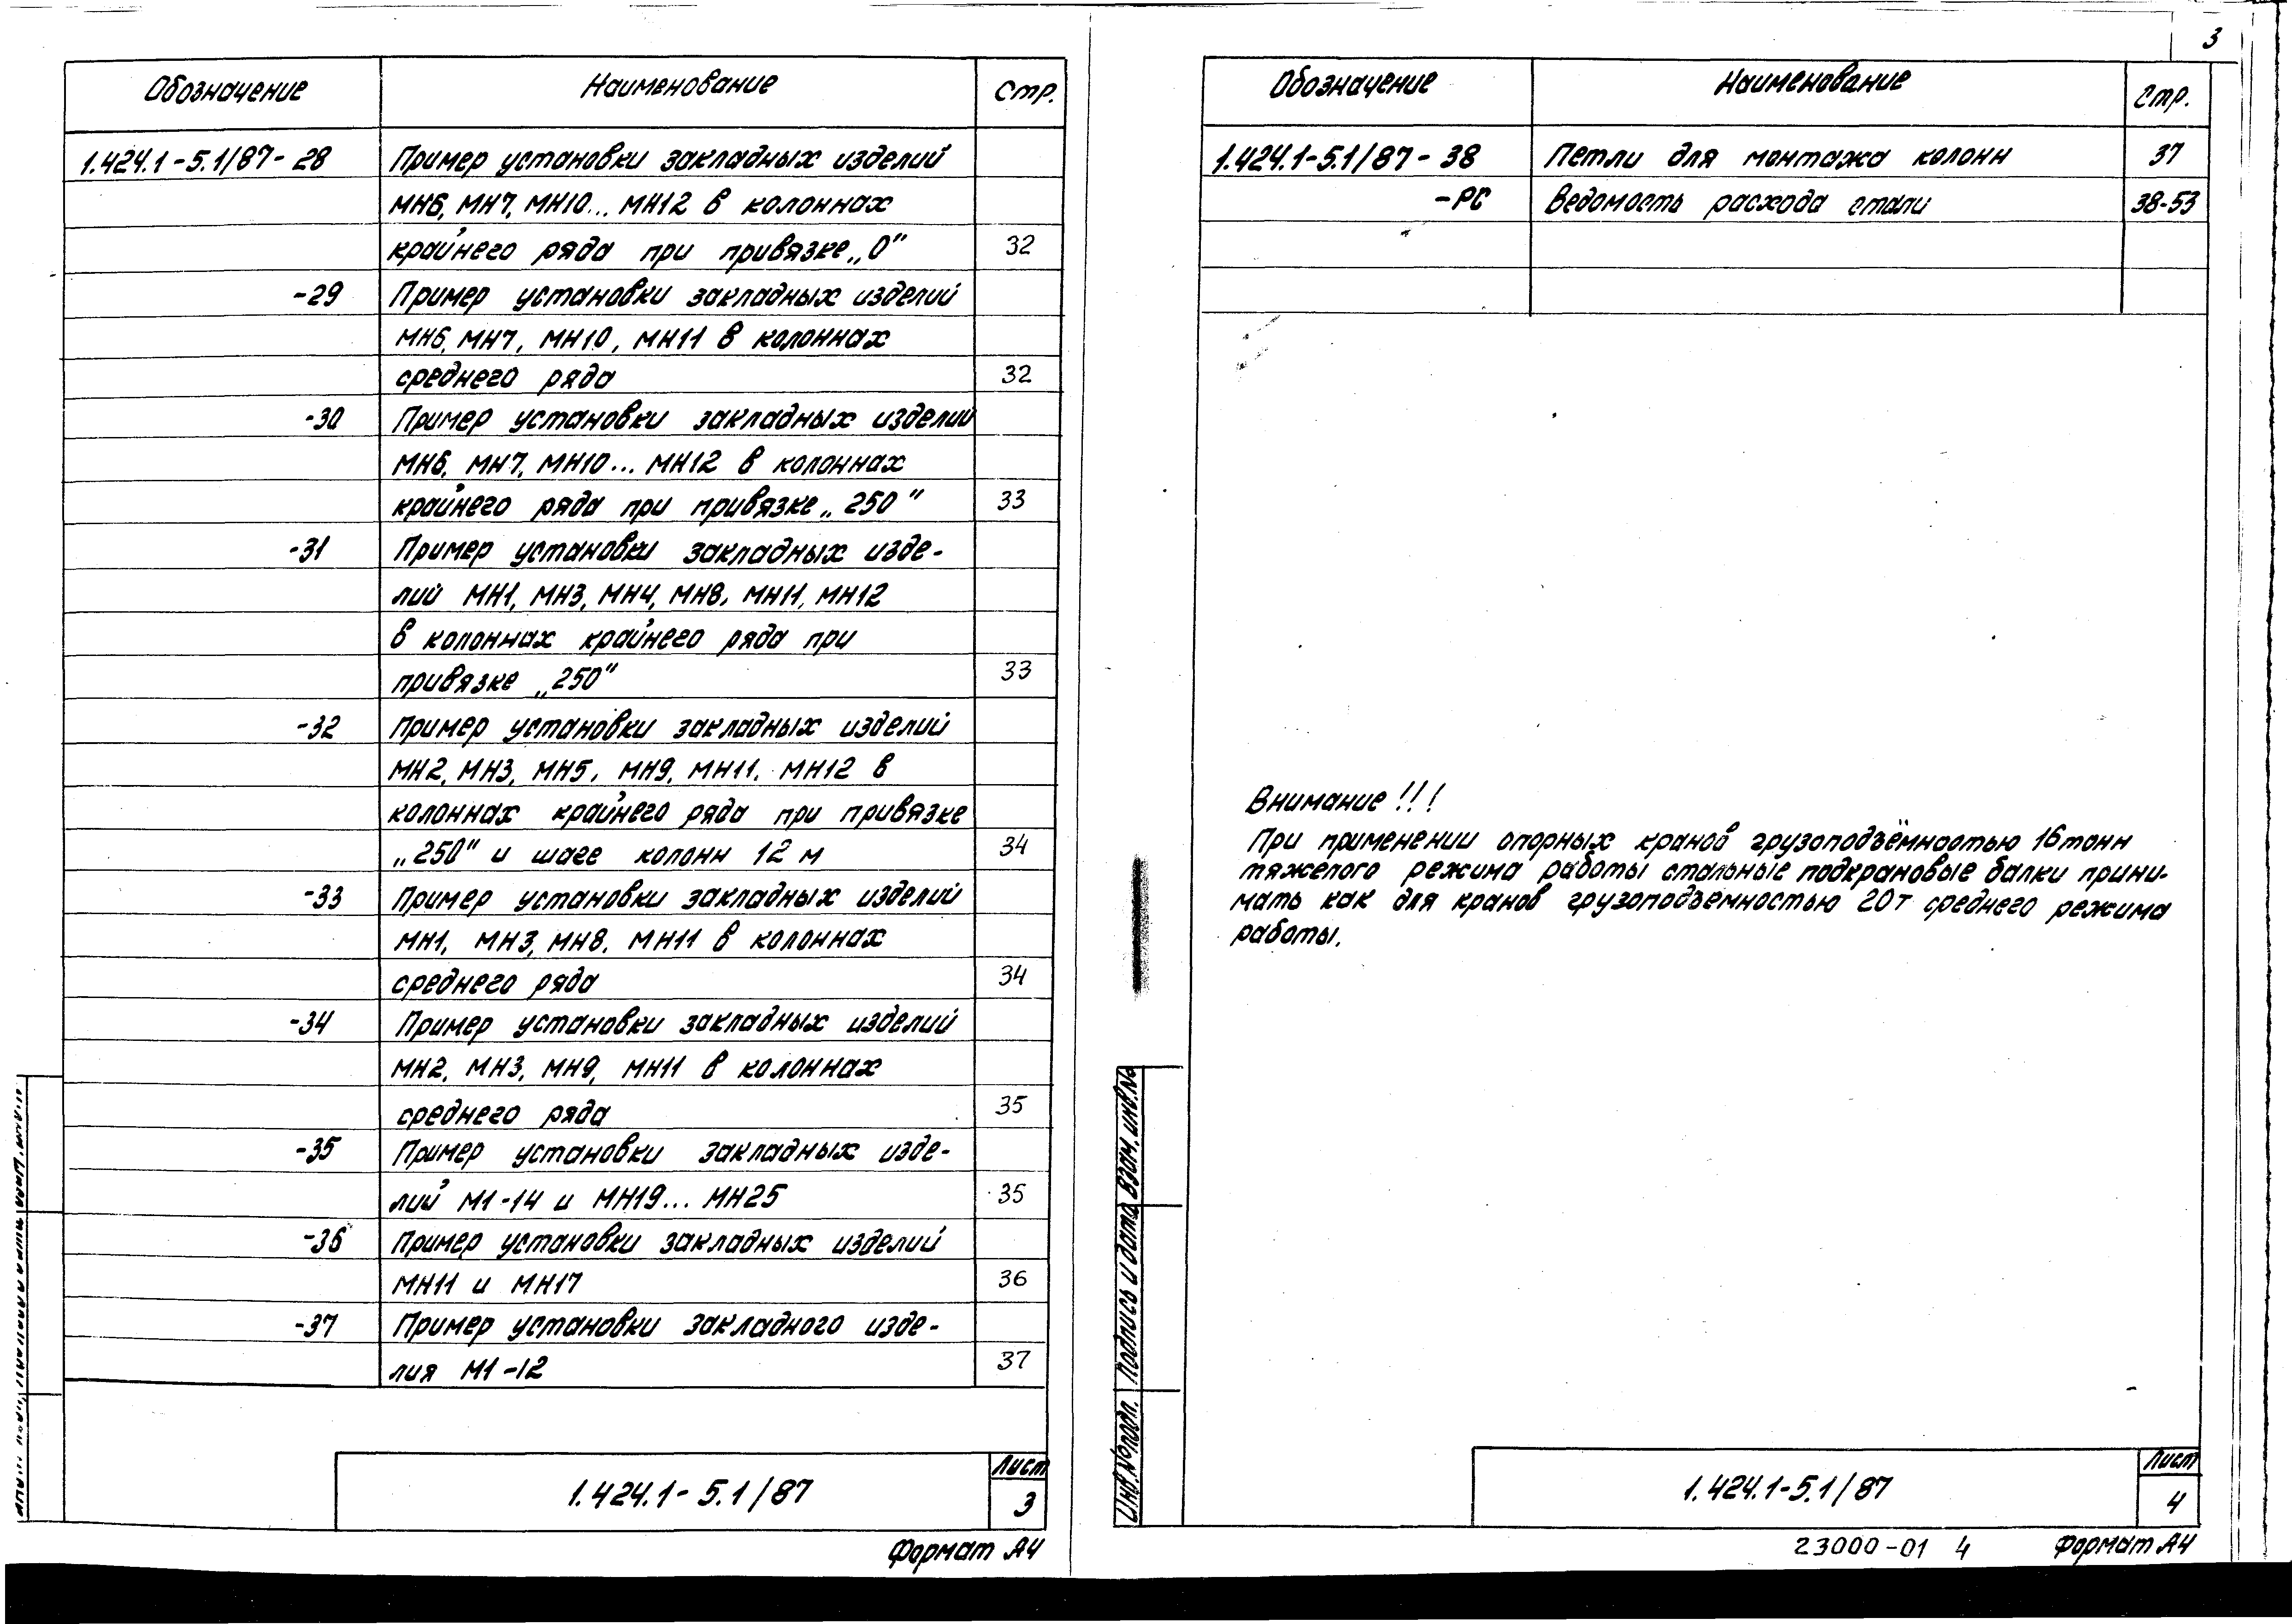 Обозначение Наименование Стр.
1.424.1-5.1/87-28 Пример установки закладных изделий
МН6, МН7, МН10... МН12 в колоннах
крайнего ряда при привязке „0" 32
-29 Пример установки закладных изделий
МН6, МН7, МН10, МН11 в колоннах
среднего ряда 32
-30 Пример установки закладных изделий
МН6, МН7, МН10... МН12 в колоннах
крайнего ряда при привязке „250" 33
-31 Пример установки закладных изде-
лий МН1, МН3, МН4, МН8, МН11, МН12
в колоннах крайнего ряда при
привязке „250" 33
-32 Пример установки закладных изделий
МН2, МН3, МН5, МН9, МН11, МН12 в
колоннах крайнего ряда при привязке
„250" и шаге колонн 12 м 34
-33 Пример установки закладных изделий
МН1, МН3, МН8, МН11 в колоннах
среднего ряда 34
-34 Пример установки закладных изделий
МН2, МН3, МН9, МН11 в колоннах
среднего ряда 35
-35 Пример установки закладных изде-
лий М1-14 и МН19... МН25 35
-36 Пример установки закладных изделий
МН11 и МН17 36
-37 Пример установки закладного изде-
лия М1-12 37
1.424.1-5.1/87
Лист
3
Формат А4
3
Обозначение Наименование Стр.
1.424.1-5.1/87-38 Петли для монтажа колонн 37
-РС Ведомость расхода стали 38-53
Внимание!!!
При применении опорных кранов грузоподъёмностью 16 тонн
тяжелого режима работы стальные подкрановые балки прини-
мать как для кранов грузоподъемностью 20т среднего режима
работы.
Инв.№ подл. Подпись и дата Взам.инв.№
1.424.1-5.1/87
Лист
4
23000-01 4 Формат А4